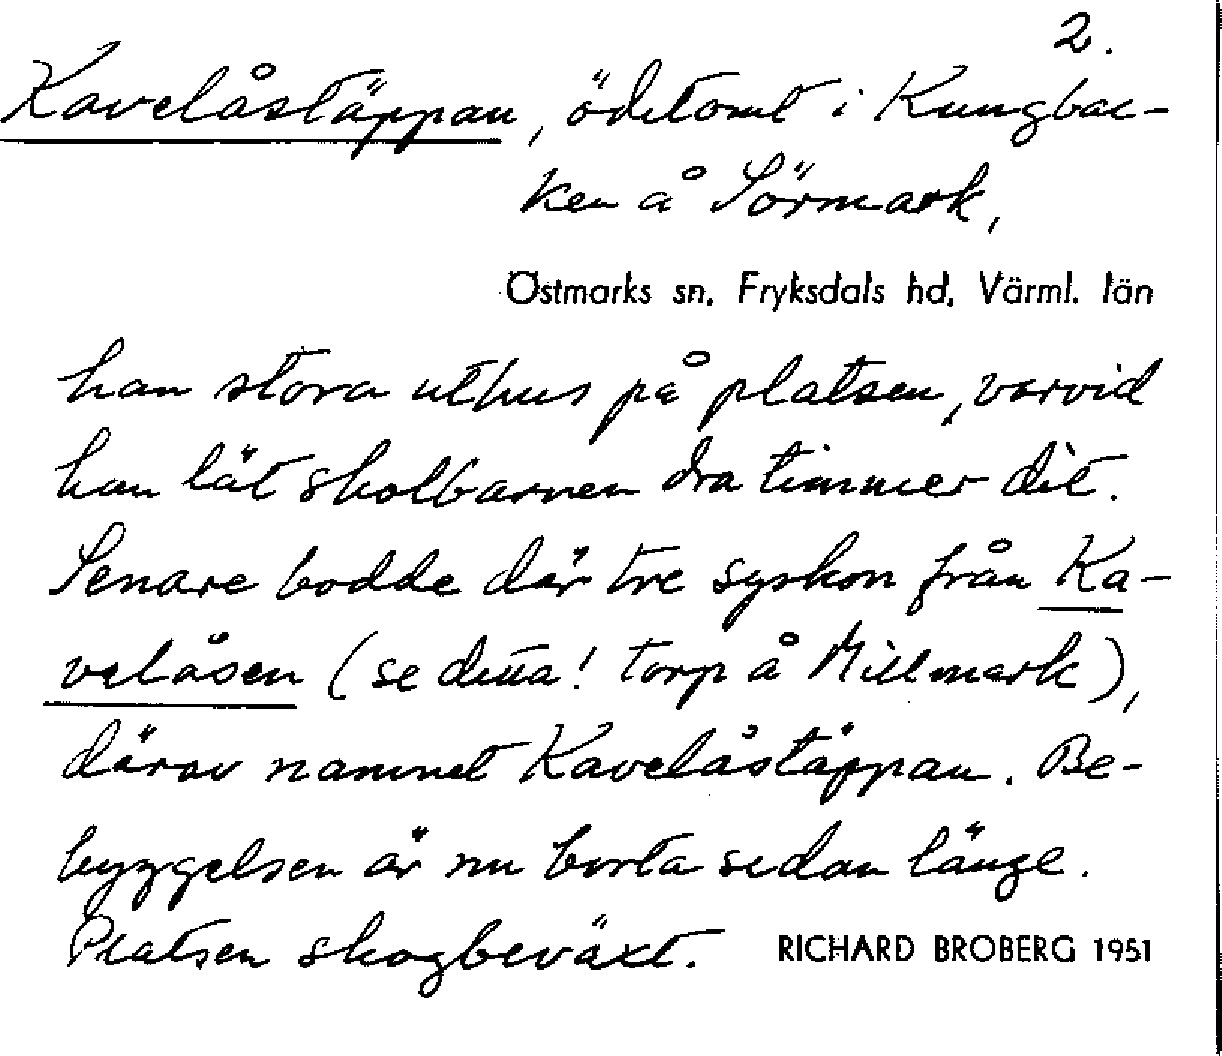 2.
Kavelåstäppan, ödetomt i Kungbac-
ken å Sörmark,
Östmarks sn. Fryksdals hd. Värml. län
han stora uthus på platsen, varvid
han lät skolbarnen dra timmer dit.
Senare bodde där tre syskon från Ka-
velåsen (se detta! torp å Millmark),
därav namnet Kavelåstäppan. Be-
byggelsen är nu borta sedan länge.
Platsen skogbeväxt. RICHARD BROBERG 1951